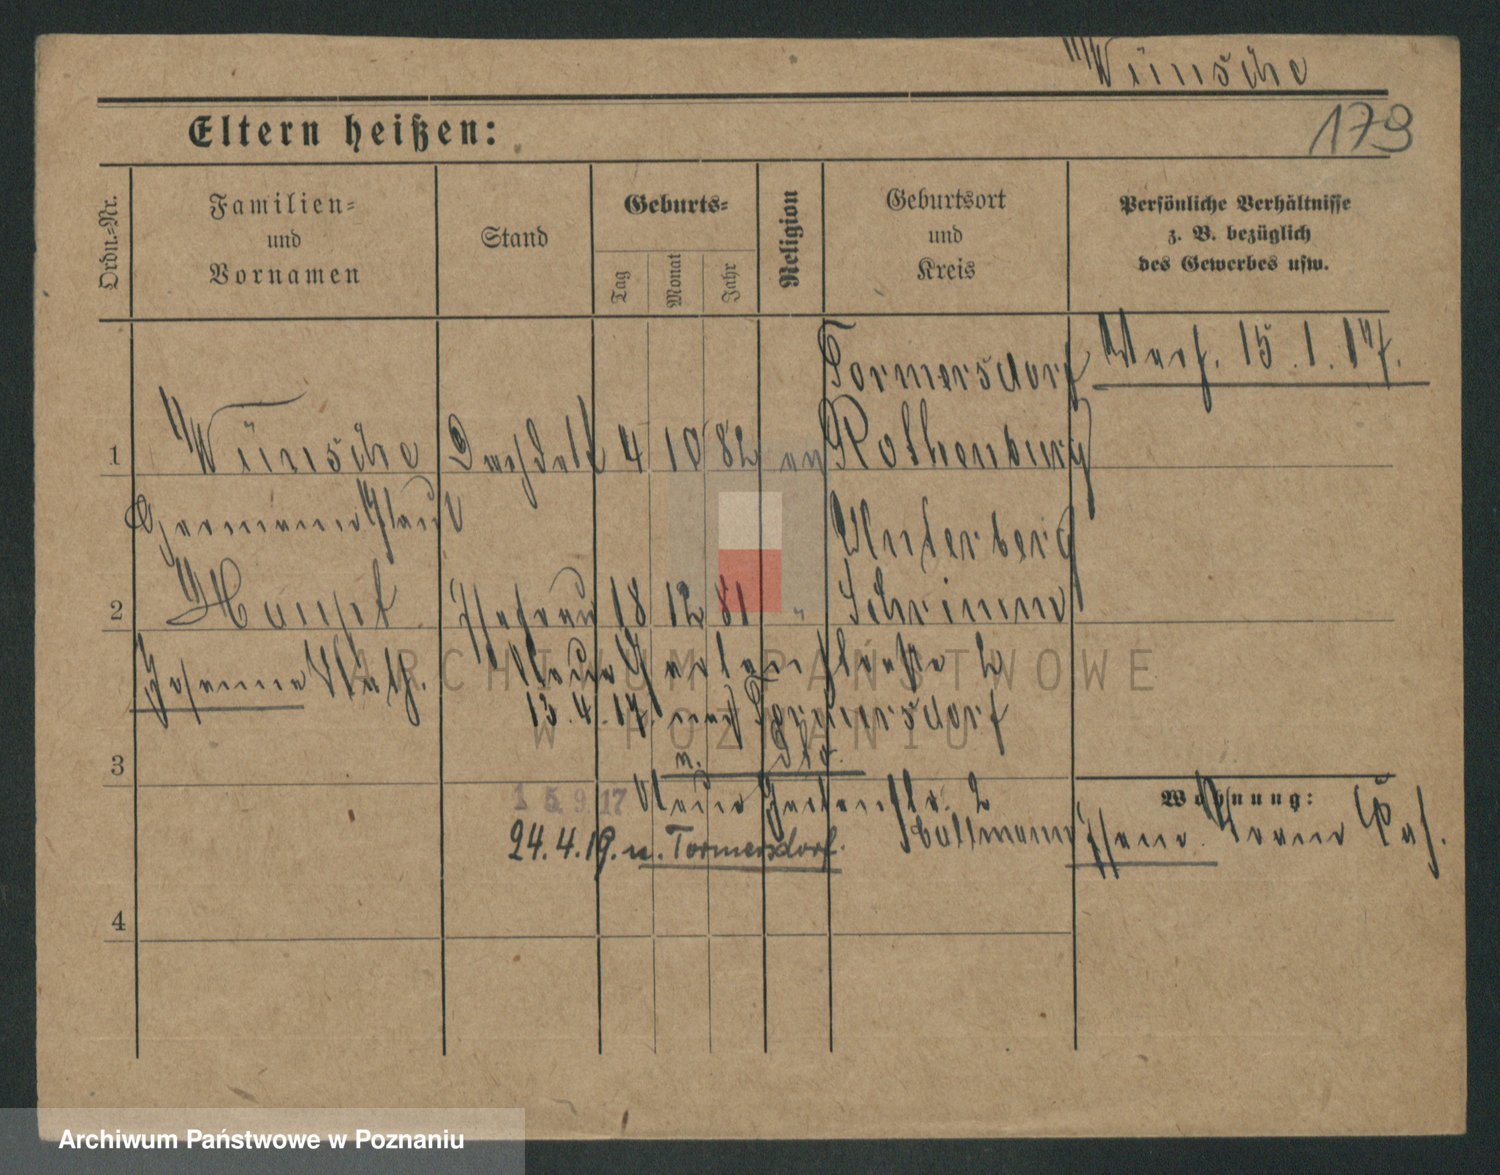 Wünsche
179
Eltern heißen:
Ordn.-Nr.
Familien-
und
Vornamen
Stand
Geburts-
Tag
Monat
Jahr
Religion
Geburtsort
und
Kreis
Persönliche Verhältnisse
z. B. bezüglich
des Gewerbes usw.
Tormersdorf
15.1.17.
1 Wünsche 4 10 82 ev Rothenburg
Hermann Paul
Unterberg
2 Haupt 18 12 81 " Schrimm
Neue Gartenstraße 2
13.4.17. nach Tormersdorf
3
15 9 17 Neue Gartenstr. 2
Wohnung:
24.4.19. n. Tormersdorf.
4
ARCHIWUM PAŃSTWOWE
W POZNANIU
Archiwum Państwowe w Poznaniu